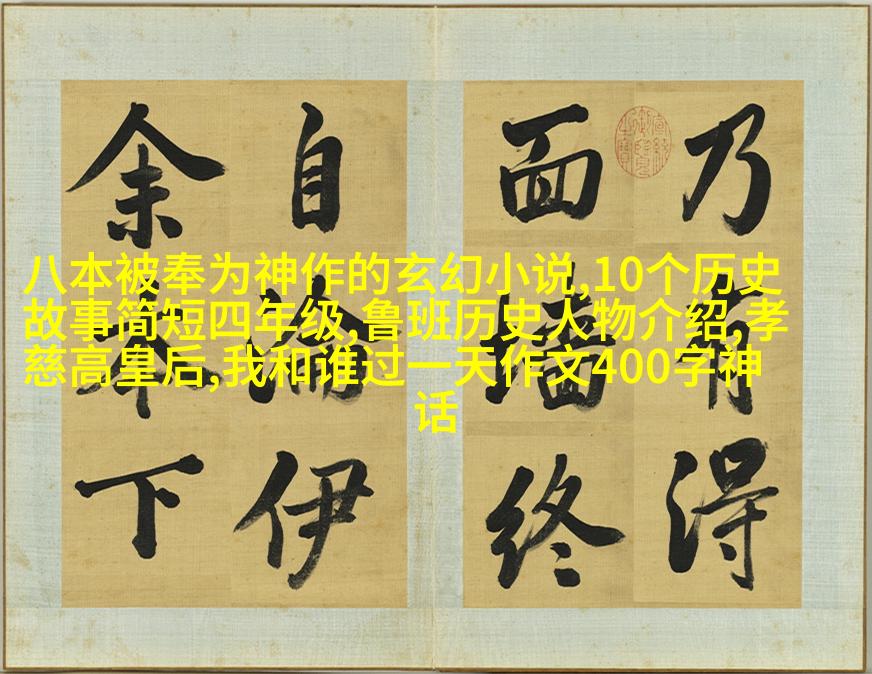 八本被奉为神作的玄幻小说,10个历史
故事简短四年级,鲁班历史人物介绍,孝
慈高皇后,我和谁过一天作文400字神
话
乃有得
面墻終
自淪伊
余本下